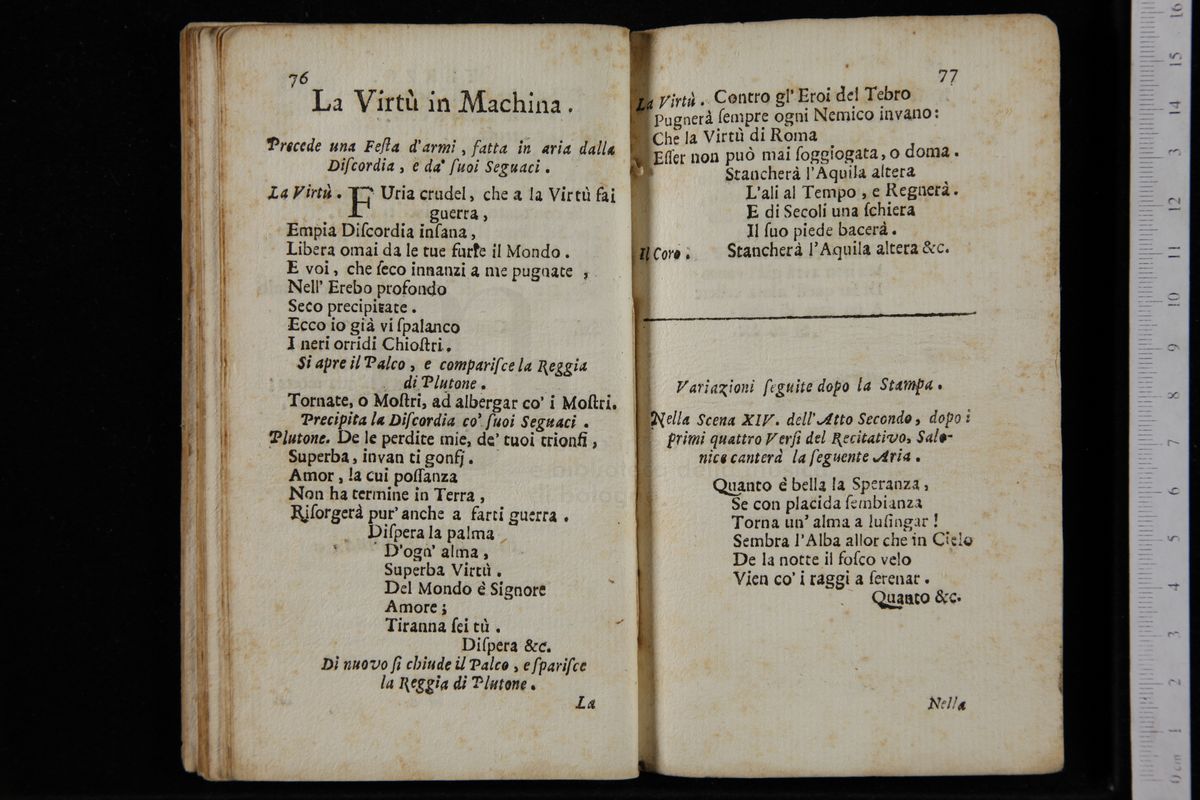 76
La Virtù in Machina.
Precede una Feſta d'armi, fatta in aria dalla
Diſcordia, e da' ſuoi Seguaci.
La Virtù. FUria crudel, che a la Virtù fai
guerra,
Empia Diſcordia inſana,
Libera omai da le tue furſe il Mondo.
E voi, che ſeco innanzi a me pugnate,
Nell' Erebo profondo
Seco precipitate.
Ecco io già vi ſpalanco
I neri orridi Chioſtri.
Si apre il Palco, e compariſce la Reggia
di Plutone.
Tornate, o Moſtri, ad albergar co' i Moſtri.
Precipita la Diſcordia co' ſuoi Seguaci.
Plutone. De le perdite mie, de' tuoi trionfi,
Superba, invan ti gonfj.
Amor, la cui poſſanza
Non ha termine in Terra,
Riſorgerà pur' anche a farti guerra.
Diſpera la palma
D'ogn' alma,
Superba Virtù.
Del Mondo è Signore
Amore;
Tiranna ſei tù.
Diſpera &c.
Di nuovo ſi chiude il Palco, e ſpariſce
la Reggia di Plutone.
La
77
La Virtù. Contro gl' Eroi del Tebro
Pugnerà ſempre ogni Nemico invano:
Che la Virtù di Roma
Eſſer non può mai ſoggiogata, o doma.
Stancherà l'Aquila altera
L'ali al Tempo, e Regnerà.
E di Secoli una ſchiera
Il ſuo piede bacerà.
Il Coro. Stancherà l'Aquila altera &c.
Variazioni ſeguite dopo la Stampa.
Nella Scena XIV. dell' Atto Secondo, dopo i
primi quattro Verſi del Recitativo, Salo-
nice canterà la ſeguente Aria.
Quanto è bella la Speranza,
Se con placida ſembianza
Torna un' alma a luſingar!
Sembra l'Alba allor che in Cielo
De la notte il foſco velo
Vien co' i raggi a ſerenar.
Quanto &c.
Nella